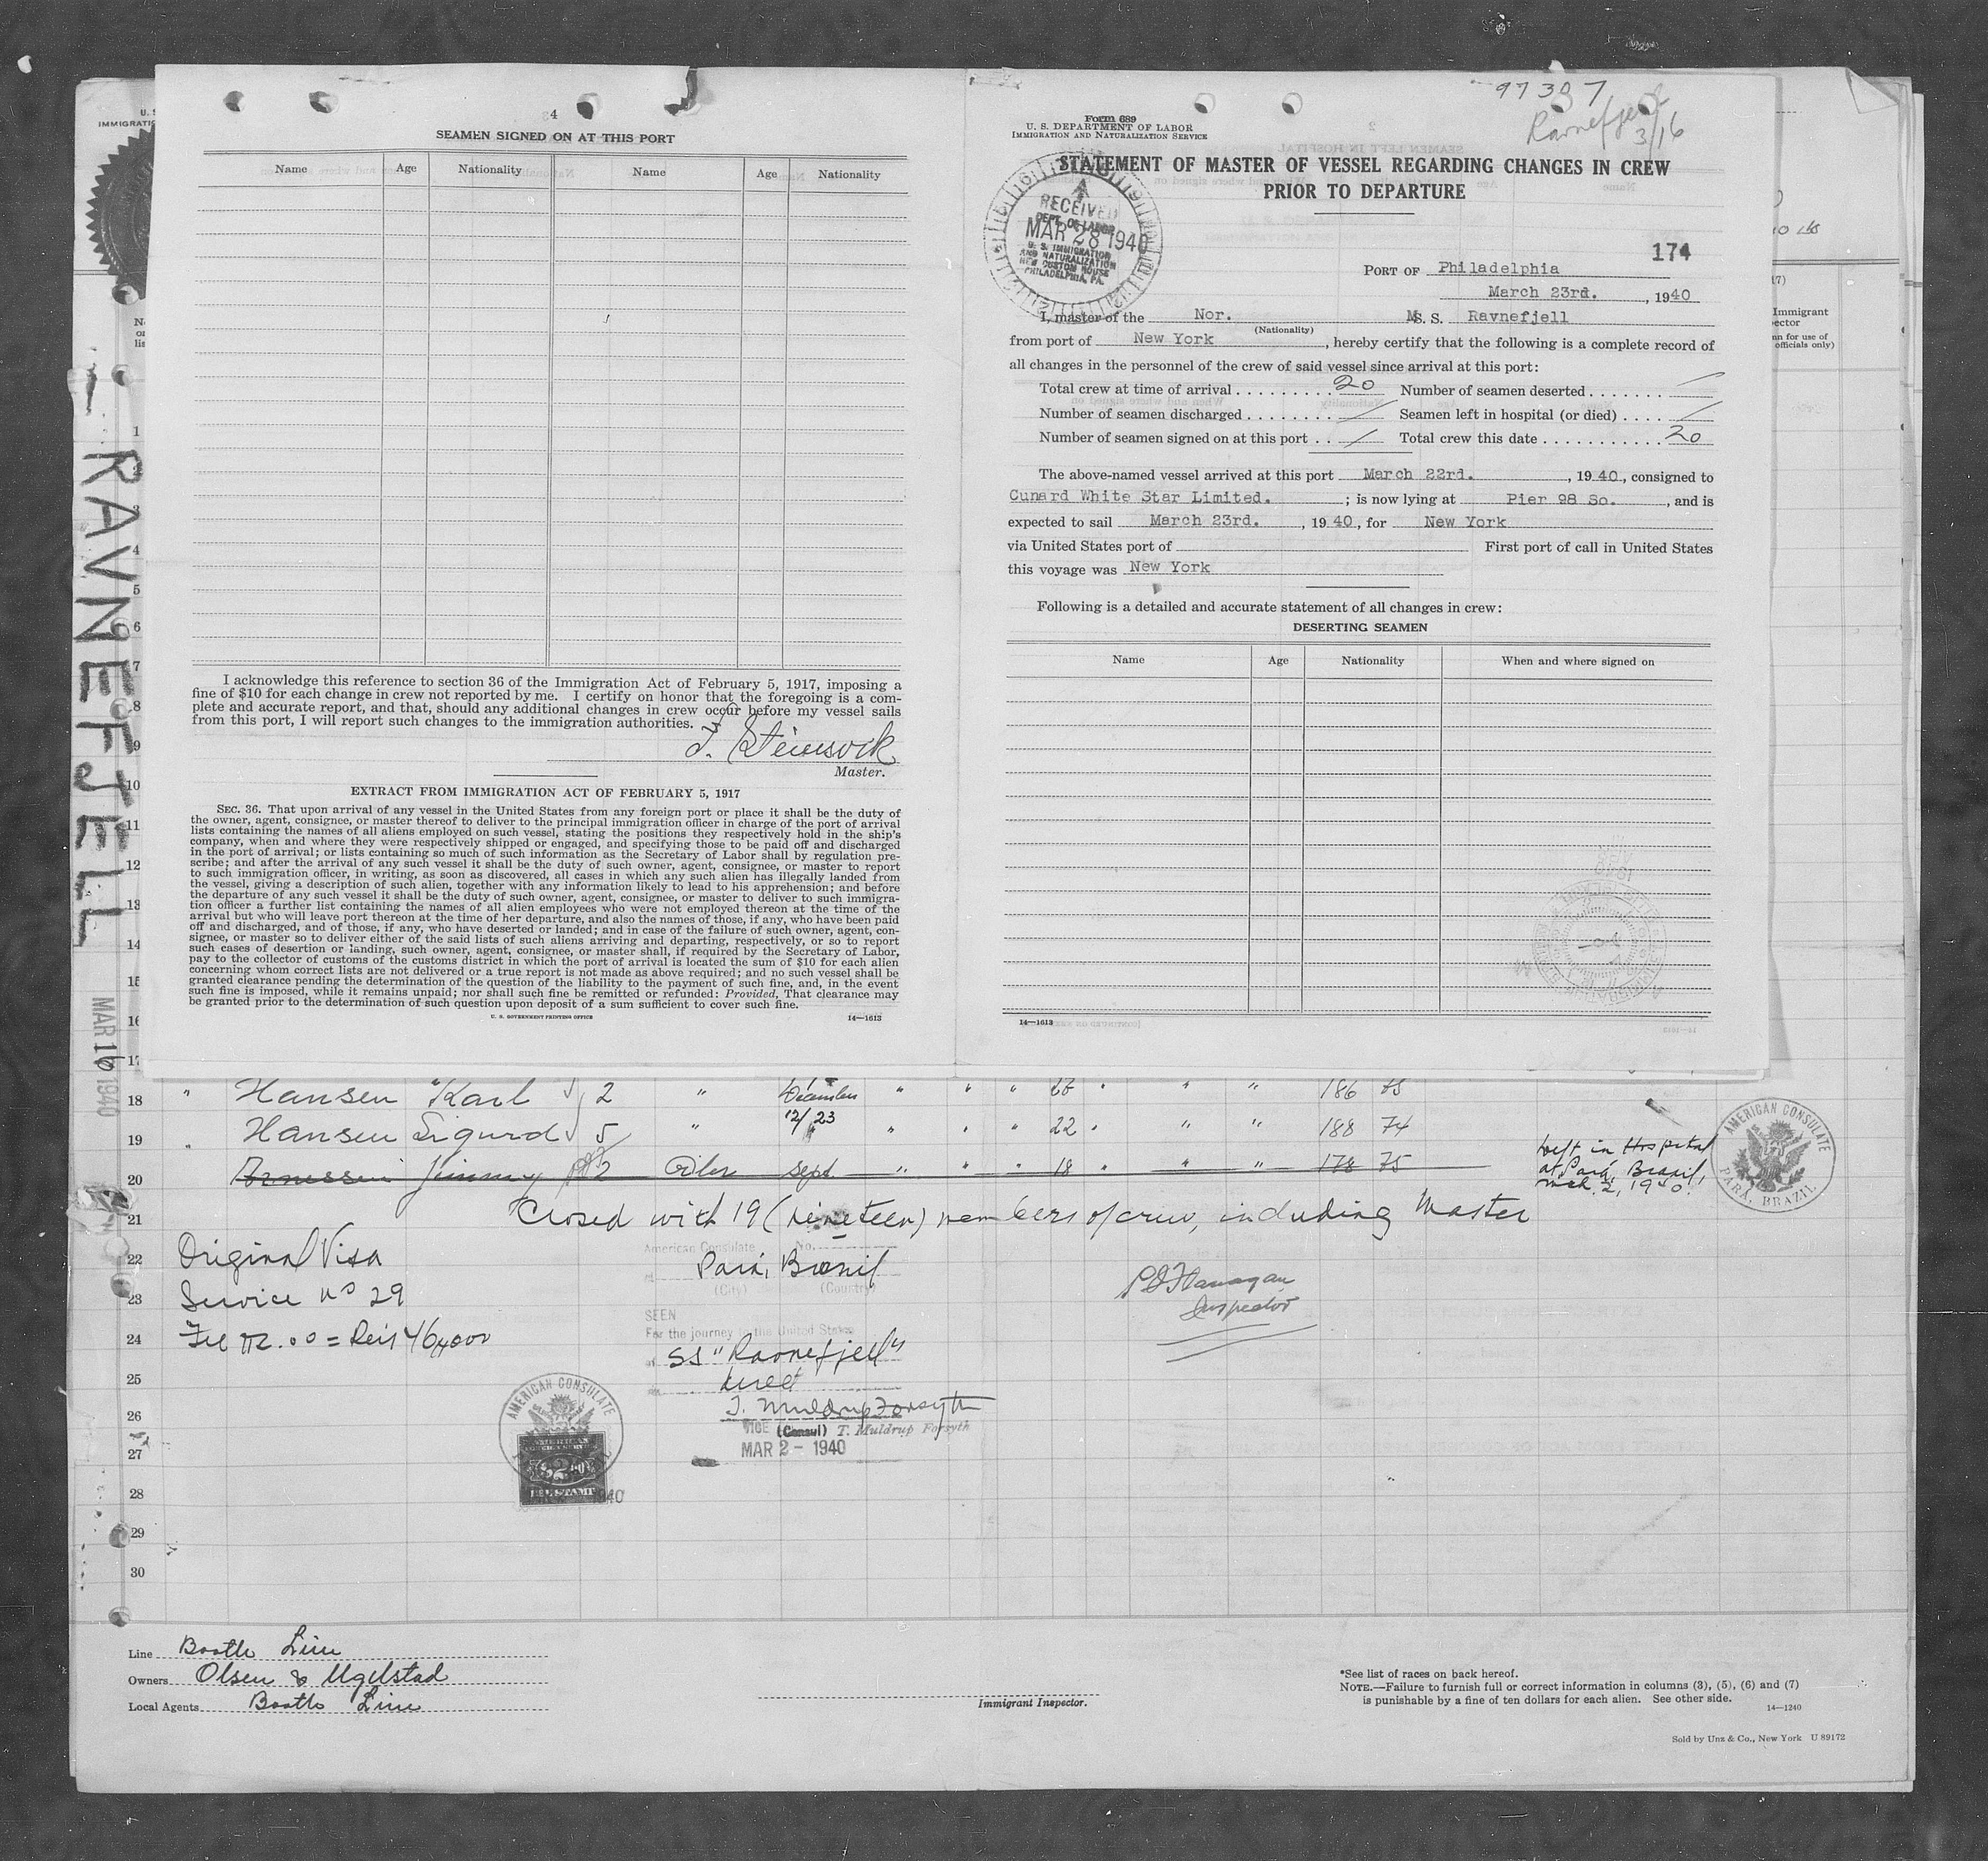 4
SEAMEN SIGNED ON AT THIS PORT
Name Age Nationality Name Age Nationality
I acknowledge this reference to section 36 of the Immigration Act of February 5, 1917, imposing a
fine of $10 for each change in crew not reported by me. I certify on honor that the foregoing is a com-
plete and accurate report, and that, should any additional changes in crew occur before my vessel sails
from this port, I will report such changes to the immigration authorities.
Master.
EXTRACT FROM IMMIGRATION ACT OF FEBRUARY 5, 1917
SEC. 36. That upon arrival of any vessel in the United States from any foreign port or place it shall be the duty of
the owner, agent, consignee, or master thereof to deliver to the principal immigration officer in charge of the port of arrival
lists containing the names of all aliens employed on such vessel, stating the positions they respectively hold in the ship's
company, when and where they were respectively shipped or engaged, and specifying those to be paid off and discharged
in the port of arrival; or lists containing so much of such information as the Secretary of Labor shall by regulation pre-
scribe; and after the arrival of any such vessel it shall be the duty of such owner, agent, consignee, or master to report
to such immigration officer, in writing, as soon as discovered, all cases in which any such alien has illegally landed from
the vessel, giving a description of such alien, together with any information likely to lead to his apprehension; and before
the departure of any such vessel it shall be the duty of such owner, agent, consignee, or master to deliver to such immigra-
tion officer a further list containing the names of all alien employees who were not employed thereon at the time of the
arrival but who will leave port thereon at the time of her departure, and also the names of those, if any, who have been paid
off and discharged, and of those, if any, who have deserted or landed; and in case of the failure of such owner, agent, con-
signee, or master so to deliver either of the said lists of such aliens arriving and departing, respectively, or so to report
such cases of desertion or landing, such owner, agent, consignee, or master shall, if required by the Secretary of Labor,
pay to the collector of customs of the customs district in which the port of arrival is located the sum of $10 for each alien
concerning whom correct lists are not delivered or a true report is not made as above required; and no such vessel shall be
granted clearance pending the determination of the question of the liability to the payment of such fine, and, in the event
such fine is imposed, while it remains unpaid; nor shall such fine be remitted or refunded: Provided, That clearance may
be granted prior to the determination of such question upon deposit of a sum sufficient to cover such fine.
U. S. GOVERNMENT PRINTING OFFICE 14—1613
97307
Ravnefjell
3/16
Form 689
U. S. DEPARTMENT OF LABOR
IMMIGRATION AND NATURALIZATION SERVICE
STATEMENT OF MASTER OF VESSEL REGARDING CHANGES IN CREW
PRIOR TO DEPARTURE
RECEIVED
DEPT. OF LABOR
MAR 28 1940
U. S. IMMIGRATION
AND NATURALIZATION
NEW CUSTOM HOUSE
PHILADELPHIA, PA.
174
PORT OF Philadelphia
March 23rd. , 1940
I, master of the Nor. M S. S. Ravnefjell
(Nationality)
from port of New York , hereby certify that the following is a complete record of
all changes in the personnel of the crew of said vessel since arrival at this port:
Total crew at time of arrival . . . . . . . . . 20 Number of seamen deserted . . . . . . .
Number of seamen discharged . . . . . . . . / Seamen left in hospital (or died) . . . . /
Number of seamen signed on at this port . . / Total crew this date . . . . . . . . . . . . 20
The above-named vessel arrived at this port March 22rd. , 1940, consigned to
Cunard White Star Limited. ; is now lying at Pier 98 So. , and is
expected to sail March 23rd. , 1940, for New York
via United States port of First port of call in United States
this voyage was New York
Following is a detailed and accurate statement of all changes in crew:
DESERTING SEAMEN
Name Age Nationality When and where signed on
14—1613
RAVNEFJELL
MAR 16 1940
18 " Hansen Karl 2 " December " " " " " " 186
19 Hansen Sigurd 5 " 12/23 " " " 22 " " " 188 74
20 Jimmy 2 Sept " " " 18 " " " 178 75
Left in Hospital
at Pará, Brasil,
Mch. 2, 1940.
AMERICAN CONSULATE
PARÁ, BRAZIL
21 Closed with 19 (nineteen) members of crew, including Master
22 Original Visa
23 Service no 29
24 Fee $2.00 =
25
26
27
28
29
30
American Consulate No.
Pará, Brasil
(City) (Country)
SEEN
For the journey to the United States
SS "Ravnefjell"
direct
T. Muldrup Forsyth
VICE (Consul) T. Muldrup Forsyth
MAR 2 - 1940
AMERICAN CONSULATE
Flanagan
Inspector
Line Booth Line
Owners Olsen & Ugelstad
Local Agents Booth Line
Immigrant Inspector.
*See list of races on back hereof.
NOTE.—Failure to furnish full or correct information in columns (3), (5), (6) and (7)
is punishable by a fine of ten dollars for each alien. See other side.
14—1240
Sold by Unz & Co., New York U 89172